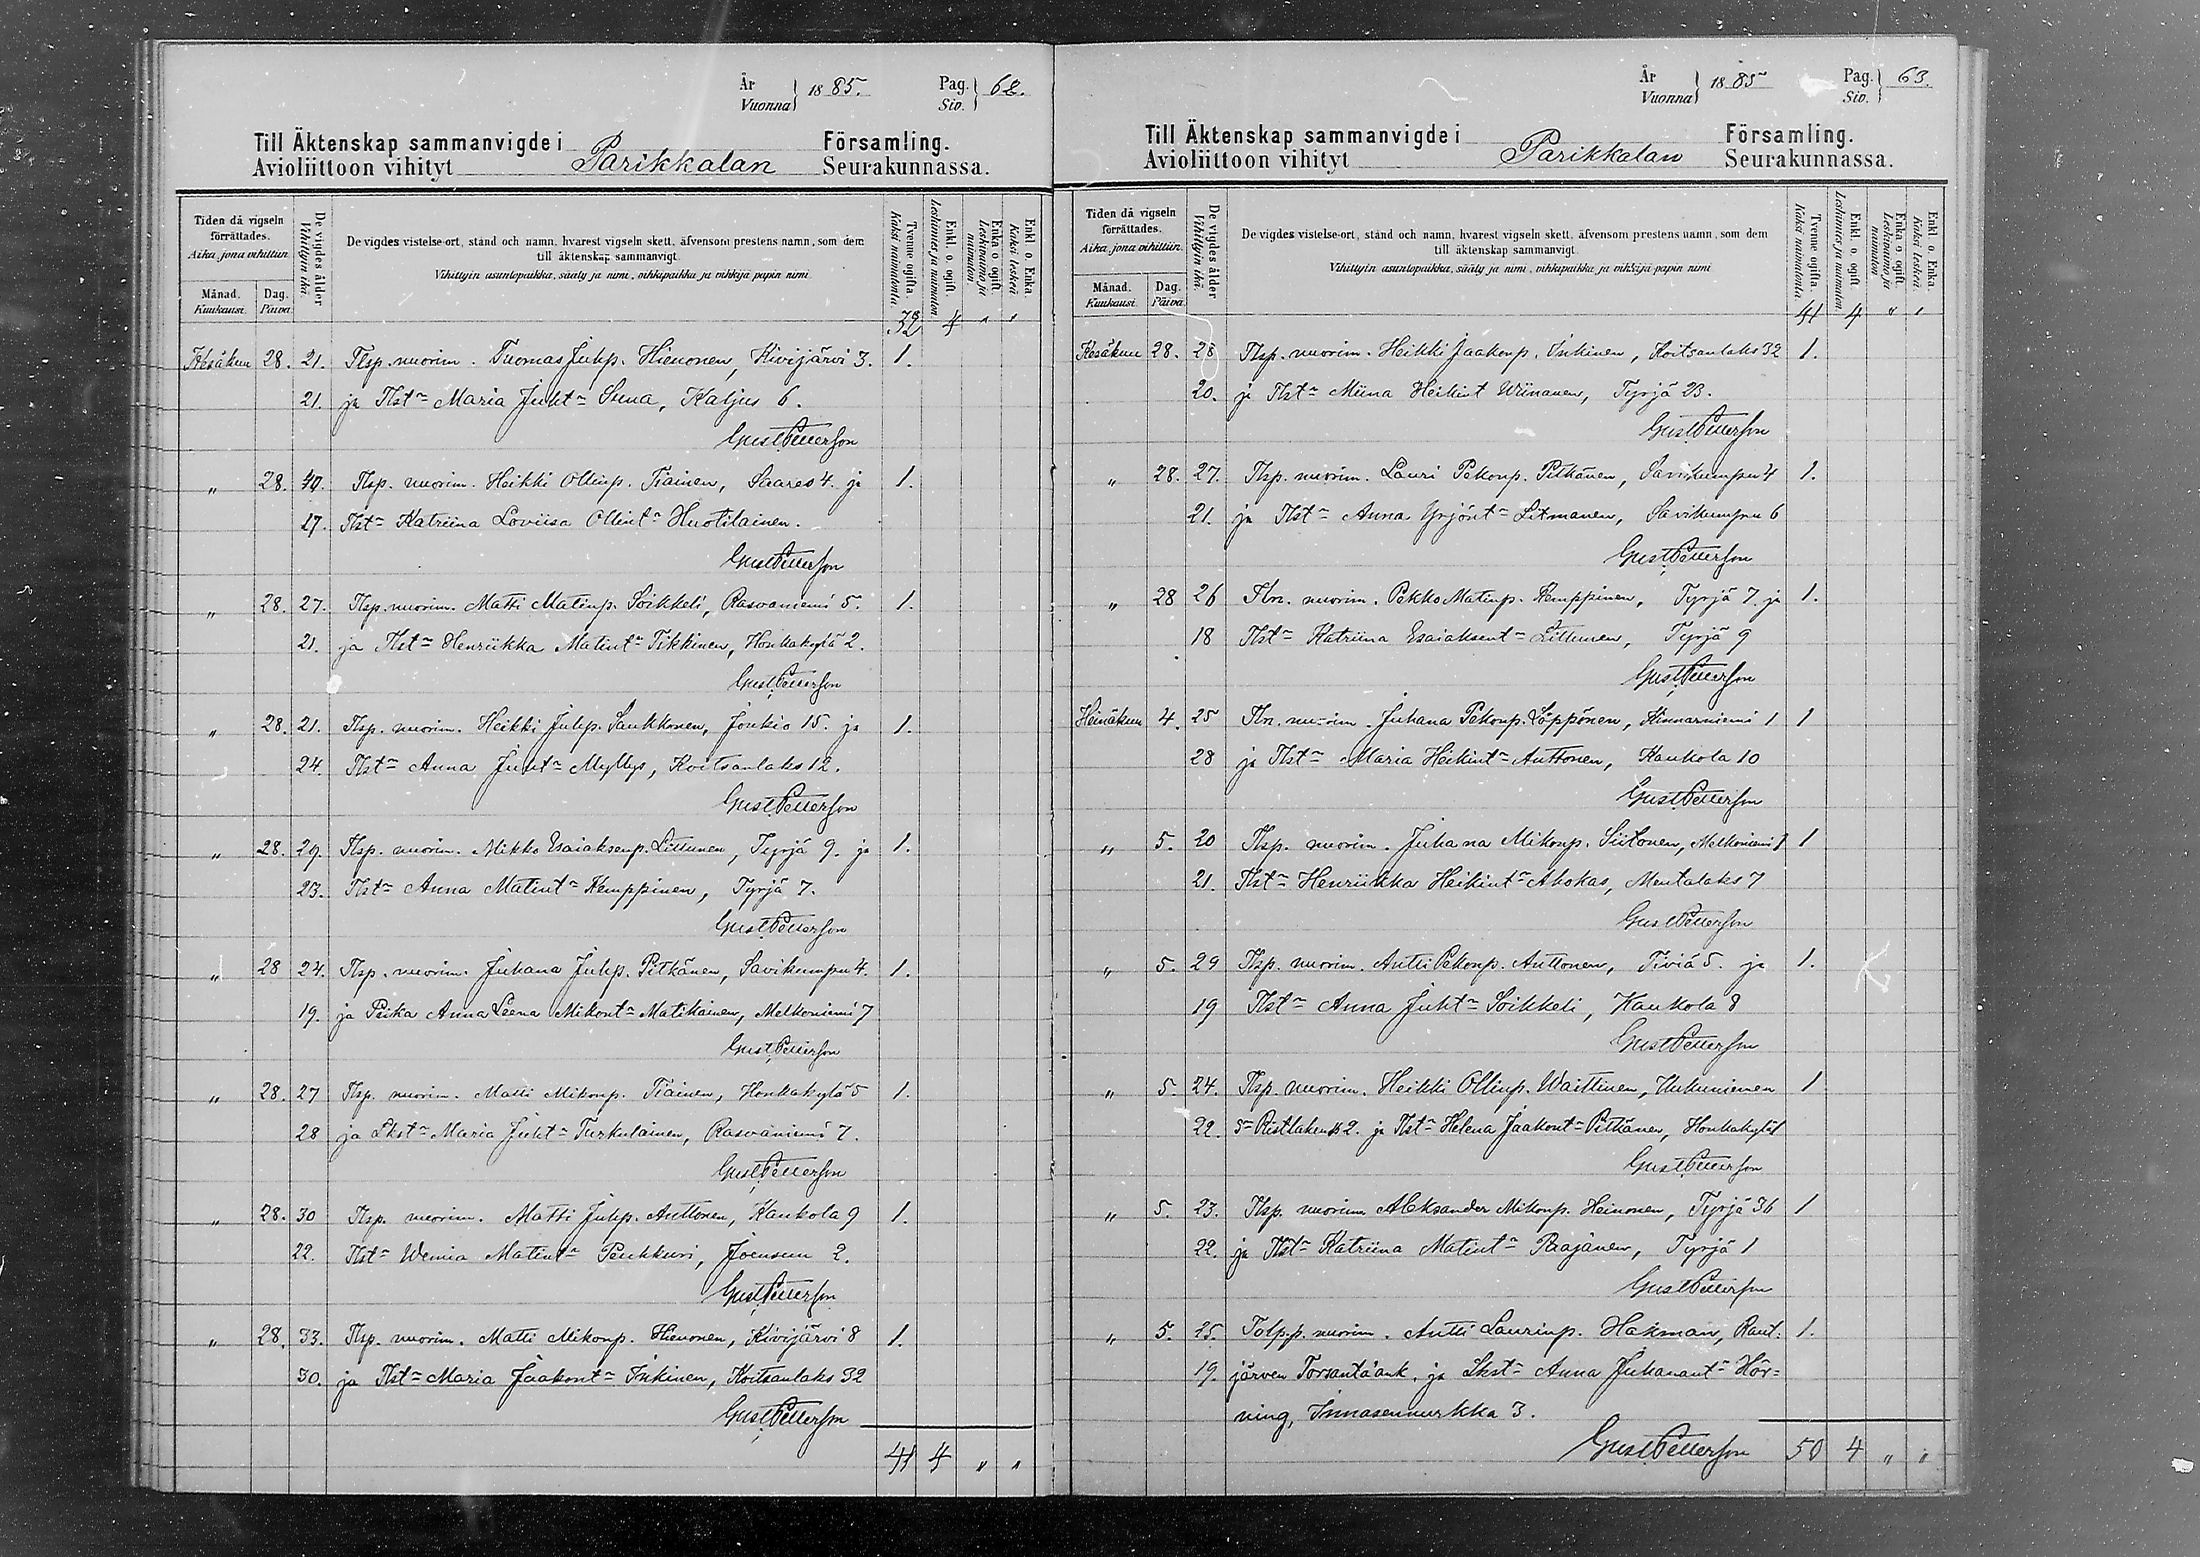 År
Vuonna
1885.
Pag.
Siv.
62.
Till Äktenskap sammanvigde i Församling.
Avioliittoon vihityt Parikkalan Seurakunnassa.
Tiden då vigseln förrättades.
Aika, jona vihittiin.
Månad.
Kuukausi.
Dag.
Päivä.
De vigdes ålder
Vihittyin ikä.
De vigdes vistelse-ort, stånd och namn, hvarest vigseln skett, äfvensom prestens namn, som dem
till äktenskap sammanvigt.
Vihittyin asuntopaikka, sääty ja nimi, vihkipaikka ja vihkijä papin nimi.
Tvenne ogifta.
Kaksi naimatonta.
Enkl. o. ogift.
Leskimies ja naimaton
Enka o. ogift.
Leskivaimo ja naimaton
Enkl. o. Enka.
Kaksi leskeä
32 4 " "
Kesäkuu 28. 21. Tlsp. nuorim. Tuomas Juhp. Hienonen, Kivijärvi 3. 1.
21. ja Tlst:n Maria Juht:n Suna, Kaljus 6.
Gust. Petterson
" 28. 40. Tlsp. nuorim. Heikki Ollinp. Tiainen, Saares 4. ja 1.
17. Tlst:n Katriina Loviisa Ollint:n Huotilainen.
Gust. Petterson
" 28. 27. Tlsp. nuorim. Matti Matinp. Soikkeli, Rasvaniemi 5. 1.
21. ja Tlst:n Henriikka Matint:n Tikkinen, Honkakylä 2.
Gust. Petterson
" 28. 21. Tlsp. nuorim. Heikki Juhp. Saukkonen, Joukio 15. ja 1.
24. Tlst:n Anna Juht:n Myllys, Koitsanlaks 12.
Gust. Petterson
" 28. 29. Tlsp. nuorim. Mikko Esaiaksenp. Littunen, Tyrjä 9. ja 1.
23. Tlst:n Anna Matint:n Kemppinen, Tyrjä 7.
Gust. Petterson
" 28 24. Tlsp. nuorim. Juhana Juhp. Pitkänen, Savikumpu 4. 1.
19. ja Piika Anna Leena Mikont:n Matikainen, Melkoniemi 7
Gust. Petterson
" 28. 27 Tlsp. nuorim. Matti Mikonp. Tiainen, Honkakylä 5 1.
28 ja Lkst:n Maria Juht:n Turkulainen, Rasvaniemi 7.
Gust. Petterson
" 28. 30 Tlsp. nuorim. Matti Juhp. Anttonen, Kankola 9 1.
22. Tlst:n Matint:n Penkkuri, Joensuu 2.
Gust. Petterson
" 28. 33. Tlsp. nuorim. Matti Mikonp. Hienonen, Kivijärvi 8 1.
30. ja Tlst:n Maria Jaakont:n Inkinen, Koitsanlaks 32
Gust. Petterson
41 4 " "
År
Vuonna
1885
Pag.
Siv.
63.
Till Äktenskap sammanvigde i Församling.
Avioliittoon vihityt Parikkalan Seurakunnassa.
Tiden då vigseln förrättades.
Aika, jona vihittiin.
Månad.
Kuukausi.
Dag.
Päivä.
De vigdes ålder
Vihittyin ikä.
De vigdes vistelse-ort, stånd och namn, hvarest vigseln skett, äfvensom prestens namn, som dem
till äktenskap sammanvigt.
Vihittyin asuntopaikka, sääty ja nimi, vihkipaikka ja vihkijä papin nimi
Tvenne ogifta.
Kaksi naimatonta.
Enkl. o. ogift.
Leskimies ja naimaton
Enka o. ogift.
Leskivaimo ja naimaton
Enkl. o. Enka.
Kaksi leskeä
41 4 " "
Kesäkuu 28. 28 Tlsp. nuorim. Heikki Jaakonp. Inkinen, Koitsanlaks 32 1.
20. ja Tlst:n Miina Heikint Wiinanen, Tyrjä 23.
Gust. Petterson
" 28. 27. Tlsp. nuorim. Lauri Pekonp. Pitkänen, Savikumpu 4 1.
21. ja Tlst:n Anna Yrjönt:n Litmanen, Savikumpu 6
Gust. Petterson
" 28 26 Tln. nuorim. Pekko Matinp. Kemppinen, Tyrjä 7. ja 1.
18 Tlst:n Katriina Esaiaksent:n Littunen, Tyrjä 9
Gust. Petterson
Heinäkuu 4. 25 Tln. nuorim. Juhana Pekonp. Löppönen, Kinnarniemi 1 1
28 ja Tlst:n Maria Heikint:n Anttonen, Kankola 10
Gust. Petterson
" 5. 20 Tlsp. nuorim. Juhana Mikonp. Siitonen, Melkoniemi 1
21. Tlst:n Henriikka Heikint:n Ahokas, Mentalaks 7
Gust. Petterson
" 5. 29 Tlsp. nuorim. Antti Pekonp. Anttonen, Tiviä 5. ja 1.
19 Tlst:n Anna Juht:n Soikkeli, Kankola 8
Gust. Petterson
" 5. 24. Tlsp. nuorim. Heikki Ollinp. Waittinen, Uukuniemen 1
22. s:n Ristlaks 2. ja Tlst:n Helena Jaakont:n Pitkänen, Honkakylä 1
Gust. Petterson
" 5. 23. Tlsp. nuorim. Aleksander Mikonp. Heinonen, Tyrjä 36 1
22. ja Tlst:n Katriina Matint:n Paajanen, Tyrjä 1
Gust. Petterson
" 5. 25. Tolp.p. nuorim. Antti Laurinp. Hakman, Raut- 1.
19. järven Torsantäänk. ja Lkst:n Anna Juhanant:n Hör=
ning, Innasennurkka 3.
Gust. Petterson
50 4 " "